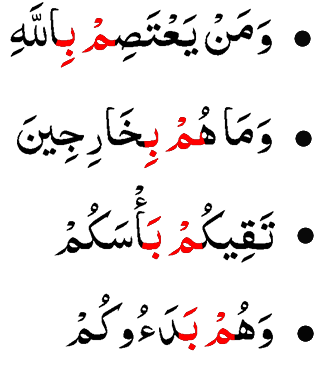 • وَمَنْ يَعْتَصِمْ بِاللَّهِ
• وَمَا هُمْ بِخَارِجِينَ
• تَقِيكُمْ بَأْسَكُمْ
• وَهُمْ بَدَءُوكُمْ